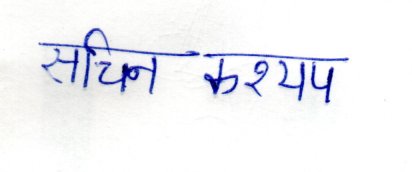 सचिन कश्यप